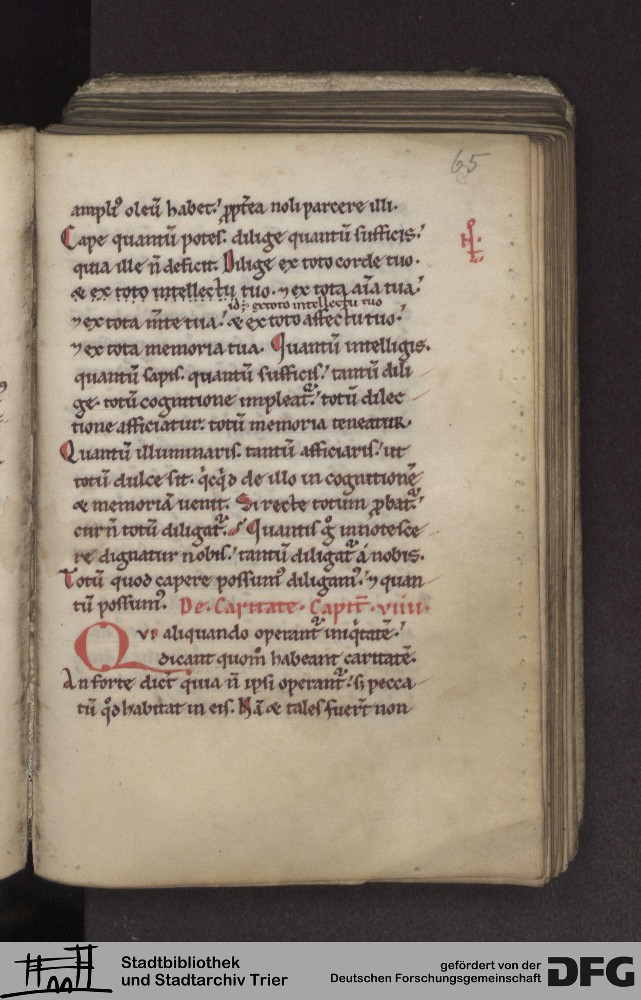 65
ampli᷒ oleū habet.' ꝓpt̄ea noli parcere illi.
Cape quantū potes. dilige quantū sufficis.'
quia ille n̄ deficit. Dilige ex toto corde tuo.
& ex toto intellectu tuo. ⁊ ex tota aīa tua.'
id÷ ex toto intellectu tuo
⁊ ex tota m̄te tua.' & ex toto affectu tuo.'
⁊ ex tota memoria tua. Quantū intelligis.
quantū sapis. quantū sufficis.' tantū dili
ge. totū cognitione impleat᷑.' totū dilec
tione afficiatur. totū memoria teneatur.
Quantū illuminaris. tantū afficiaris.' ut
totū dulce sit. q̇cq̇d de illo in cognitionē
& memoriā uenit. Si recte totum ꝓbat᷑.'
cur n̄ totū diligat᷑. Quantis g̊ innotesce
re dignatur nobis.' tantū diligat᷑ a nobis.
Totū quod capere possum᷒ diligam᷒.' ⁊ quan
tū possum᷒. De. Caritate. Capit̄. viiii.
Qvi aliquando operant᷑ iniq̇tatē.'
dicant quom̊ habeant caritatē.
An forte dic̄t quia n̄ ipsi operant᷑.' s; pecca
tū qd̊ habitat in eis. Nā & tales fuer̄t non
Stadtbibliothek
und Stadtarchiv Trier
gefördert von der
Deutschen Forschungsgemeinschaft
DFG